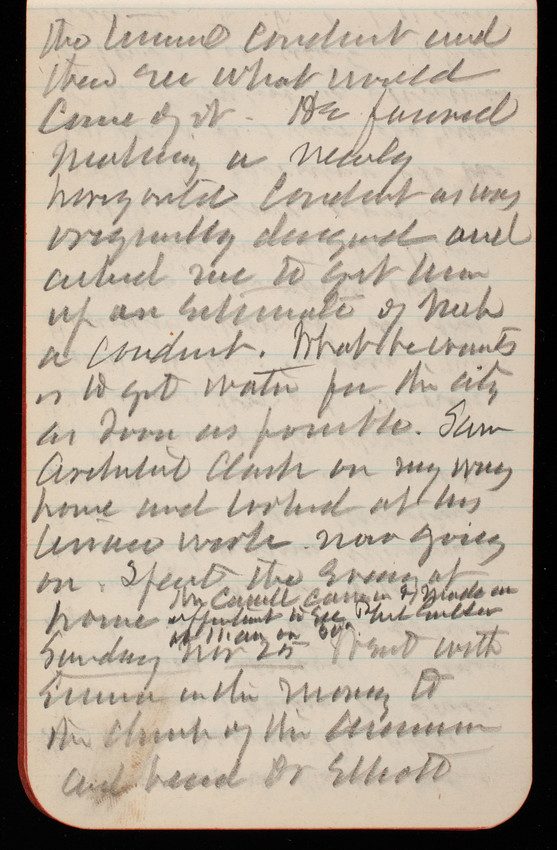 the tunnel conduit and
then see what would
come of it. He favored
making a newly
horizontal conduit as was
originally designed and
asked me to get him
up an Estimate of such
a conduit. What he wants
is to get water for the city
as soon as possible. Saw
Architect Clark on my way
home and looked at his
terrace work now going
on. Spent the Evening at
home Mr Casell came in & made an
appointment to see Phil
at 11 am on
Sunday Nov 25 Went with
Emma in the morning to
the church of the Covenant
and heard Dr Elliott